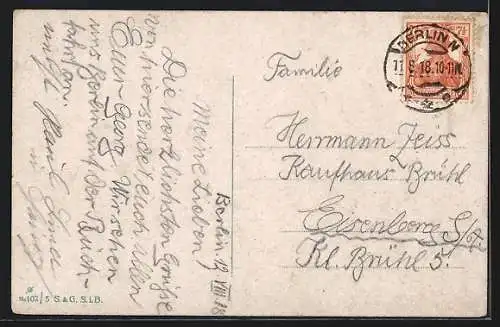 Berlin, 19 VIII 18
Meine Lieben
Die herzlichsten Grüße
von hier sendet euch Allen
Euer Georg. Wir sehen
uns Berlin auf der Rück-
fahrt an.
Familie
Herrmann Zeiss
Kaufhaus Brühl
Eisenberg S/A
Kl. Brühl 5
BERLIN N
11.8.18.10-11
7½
No 102/5 S.&G.S.i.B.